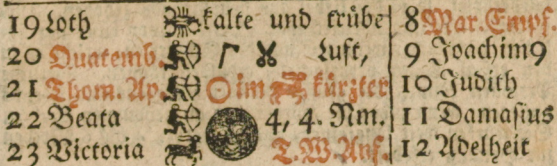 19 Loth kalte und trübe 8 Mar. Empf.
20 Quatemb. Luft, 9 Joachim 9
21 Thom. Ap. ☉ im kürzter 10 Judith
22 Beata 4, 4. Nm. 11 Damasius
23 Victoria T. W. Anf. 12 Adelheit